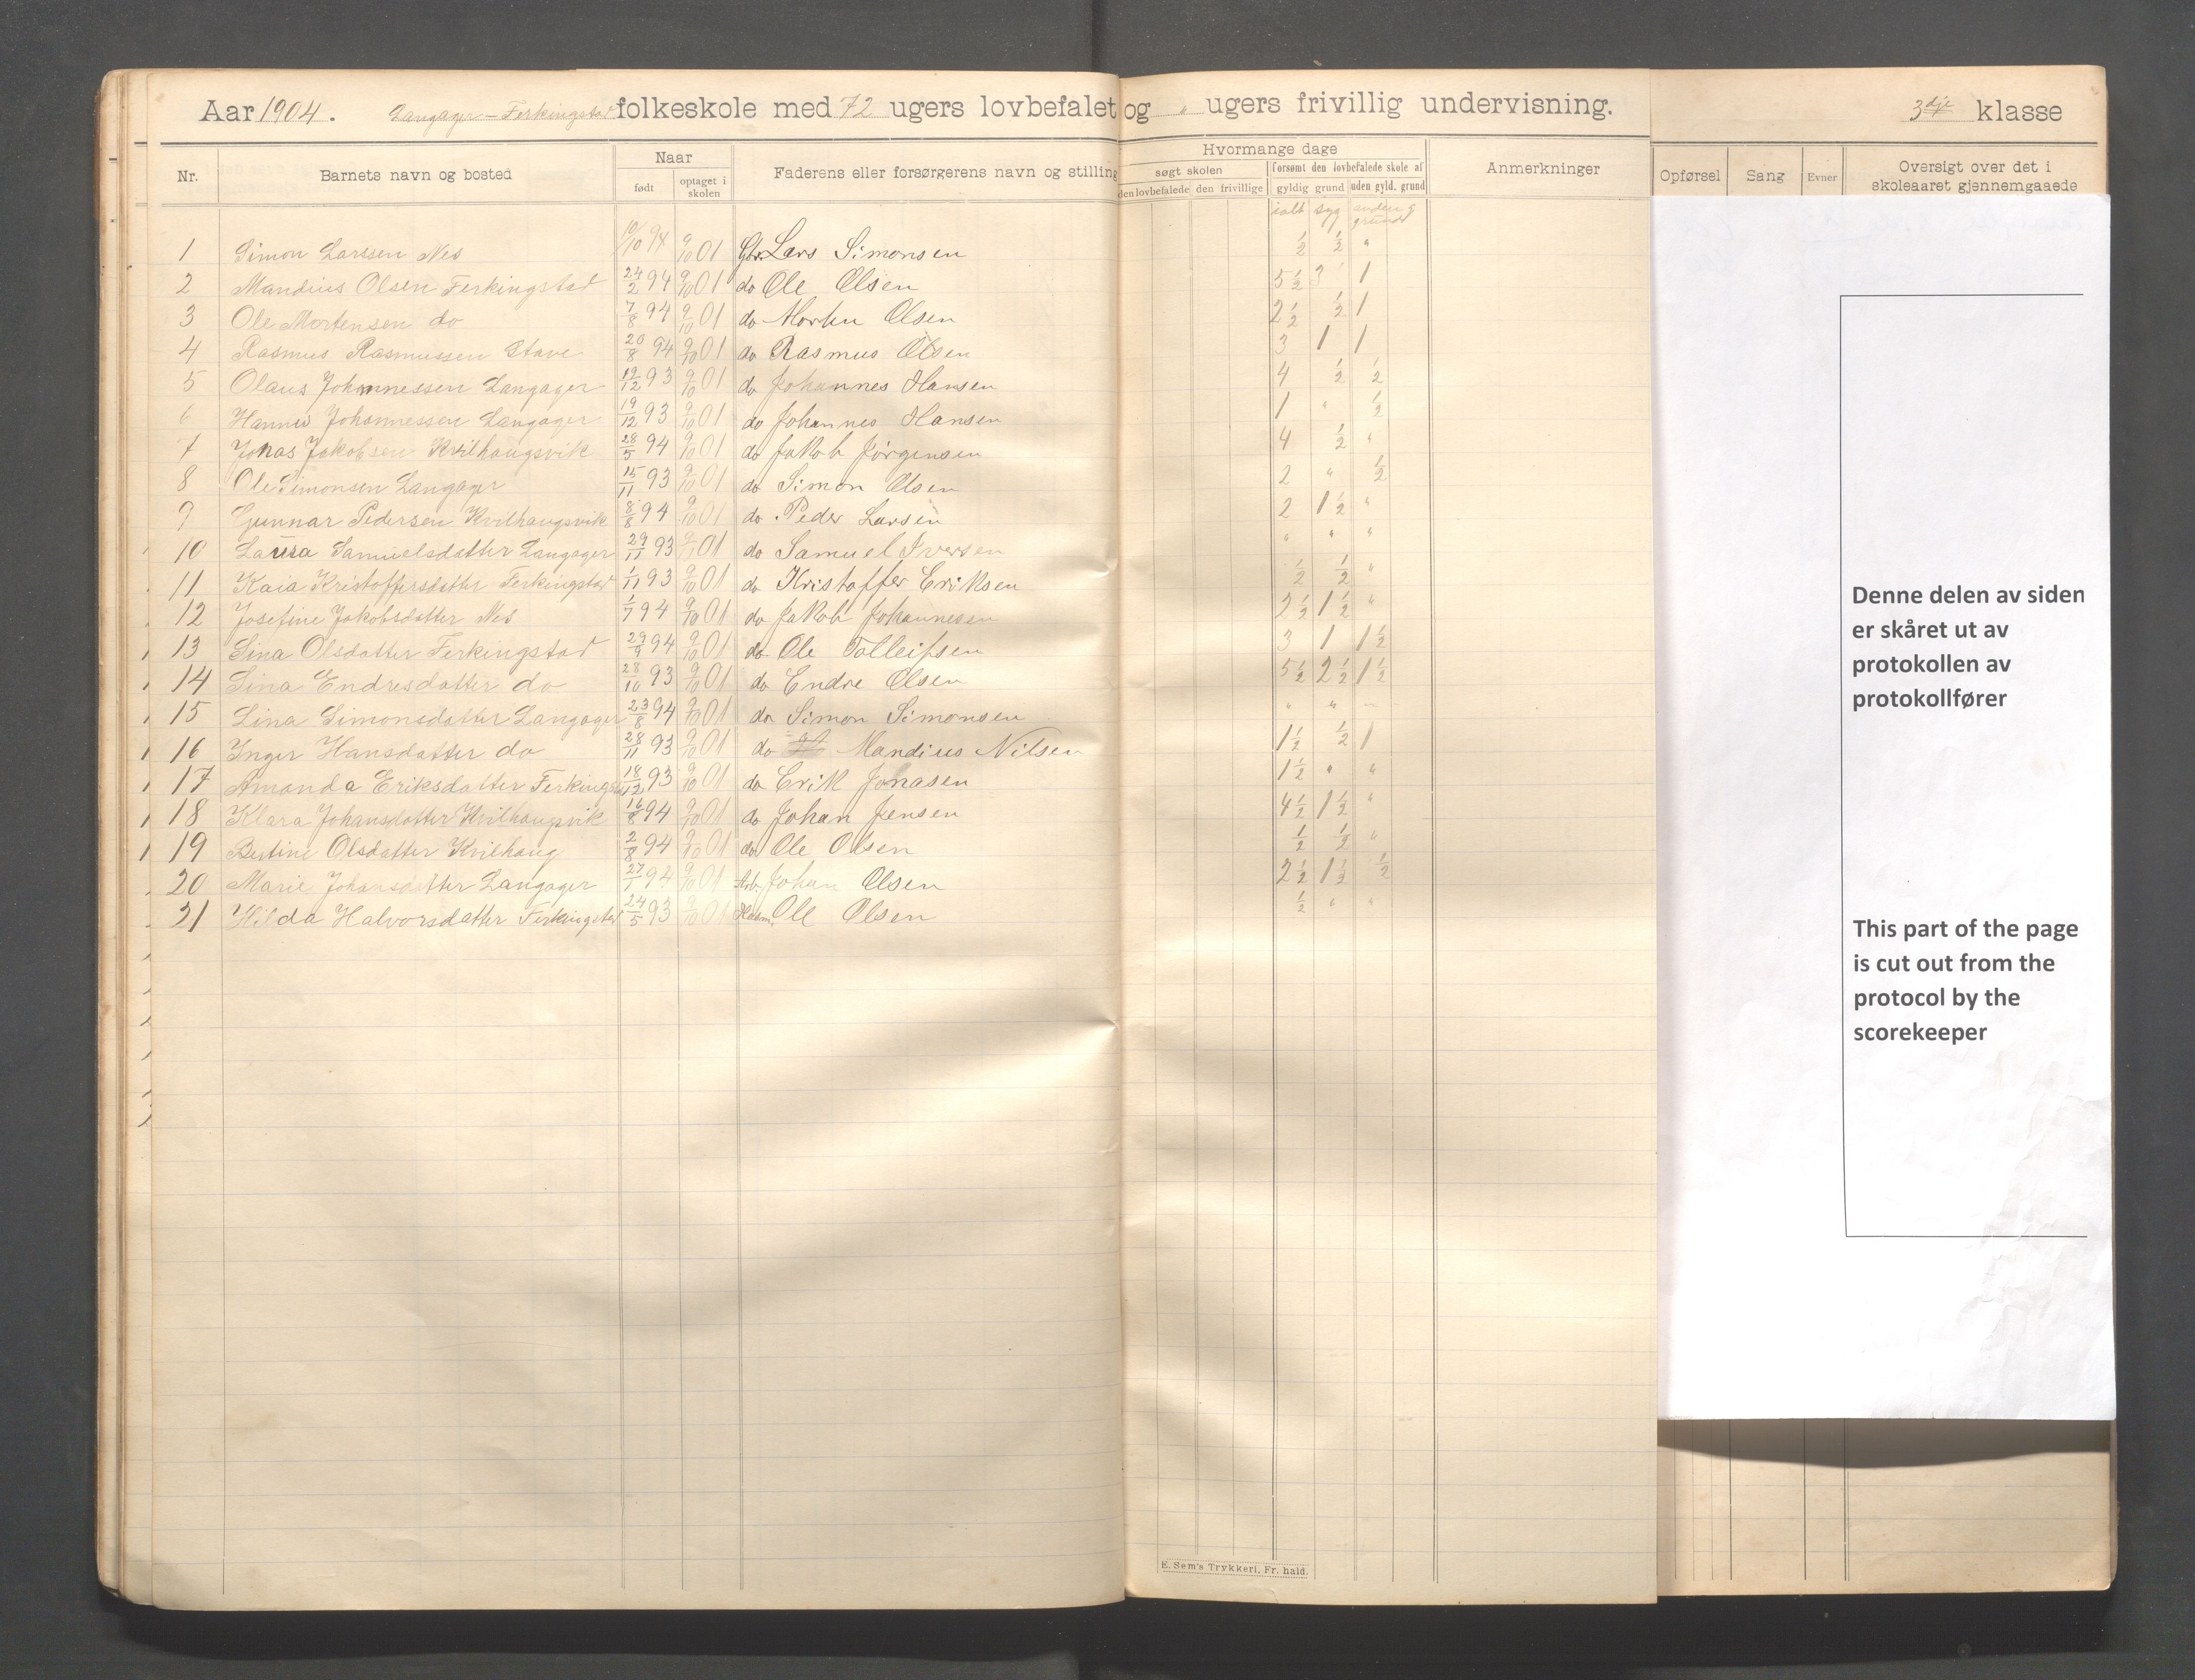 Aar 1904. Langager-Ferkingstad folkeskole med 72 ugers lovbefalet og " ugers frivillig undervisning. 3dje klasse
Nr. Barnets navn og bosted Naar født optaget i skolen Faderens eller forsørgerens navn og stilling Hvormange dage søgt skolen den lovbefalede den frivillige forsømt den lovbefalede skole af gyldig grund uden gyld. grund Anmerkninger Opførsel Sang Evner Oversigt over det i skoleaaret gjennemgaaede
ialt syg anden g grund
1 Simon Larssen Nes 10/10 94 9/10 01 Gbr. Lars Simonsen 1/2 1/2 "
2 Mandius Olsen Ferkingstad 24/2 94 9/10 01 do Ole Olsen 5 1/2 3 1
3 Ole Mortensen do 7/8 94 9/10 01 do Morten Olsen 2 1/2 1/2 1
4 Rasmus Rasmussen Stave 20/8 94 9/10 01 do Rasmus Olsen 3 1 1
5 Olaus Johannessen Langager 19/12 93 9/10 01 do Johannes Hansen 4 1/2 1/2
6 Hannes Johannessen Langager 19/12 93 9/10 01 do Johannes Hansen 1 " 1/2
7 Jonas Jakobsen Kvilhaugsvik 28/5 94 9/10 01 do Jakob Jørgensen 4 1/2 "
8 Ole Simonsen Langager 15/11 93 9/10 01 do Simon Olsen 2 " 1/2
9 Gunnar Pedersen Kvilhaugsvik 8/8 94 9/10 01 do Peder Larsen 2 1 1/2 "
10 Laura Samuelsdatter Langager 29/11 93 9/10 01 do Samuel Iversen " " "
11 Kaia Kristoffersdatter Ferkingstad 1/11 93 9/10 01 do Kristoffer Eriksen 1/2 1/2 "
12 Josefine Jakobsdatter Nes 1/7 94 9/10 01 do Jakob Johannesen 2 1/2 1 1/2 "
13 Sina Olsdatter Ferkingstad 29/9 94 9/10 01 do Ole Tolleifsen 3 1 1 1/2
14 Sina Endresdatter do 28/10 93 9/10 01 do Endre Olsen 5 1/2 2 1/2 1 1/2
15 Lina Simonsdatter Langager 23/8 94 9/10 01 do Simon Simonsen " " "
16 Inger Hansdatter do 28/11 93 9/10 01 do Mandius Nilsen 1 1/2 1/2 1
17 Amanda Eriksdatter Ferkingstad 18/12 93 9/10 01 do Erik Jonasen 1 1/2 " "
18 Klara Johansdatter Kvilhaugsvik 16/8 94 9/10 01 do Johan Jensen 4 1/2 1 1/2 "
19 Bertine Olsdatter Kvilhaug 2/8 94 9/10 01 do Ole Olsen 1/2 1/2 "
20 Marie Johansdatter Langager 27/1 94 9/10 01 Arb. Johan Olsen 2 1/2 1 1/2 1/2
21 Hilda Halvorsdatter Ferkingstad 24/5 93 9/10 01 Husm. Ole Olsen 1/2 " "
Denne delen av siden
er skåret ut av
protokollen av
protokollfører
This part of the page
is cut out from the
protocol by the
scorekeeper
E. Sem's Trykkeri, Fr. hald.